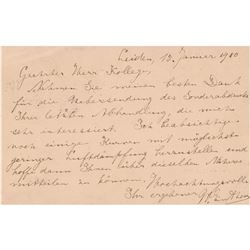 Leiden, 13. Januar 1910
Geehrter Herr Kollege,
Nehmen Sie meinen besten Dank
für die Uebersendung des Sonderabdrucks
Ihrer letzten Abhandlung, die mich
sehr interessiert. Ich beabsichtige
noch einige Kurven mit möglichst
geringer Luftdämpfung herzustellen und
hoffe dann Ihnen über dieselben Näheres
mitteilen zu können. Hochachtungsvoll
Ihr ergebener